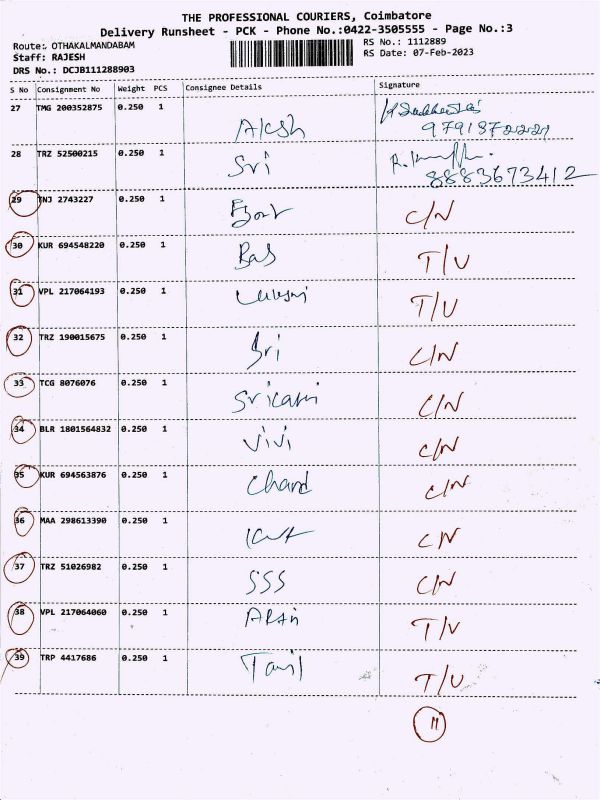 THE PROFESSIONAL COURIERS, Coimbatore
Delivery Runsheet - PCK - Phone No.:0422-3505555 - Page No.:3
Route: OTHAKALMANDABAM RS No.: 1112889
Staff: RAJESH RS Date: 07-Feb-2023
DRS No.: DCJB111288903
S No Consignment No Weight PCS Consignee Details Signature
27 TMG 200352875 0.250 1
Aksh 9791872221
28 TRZ 52500215 0.250 1 Sri
8883673412
29 TNJ 2743227 0.250 1 C/N
30 KUR 694548220 0.250 1 Bas T/U
31 VPL 217064193 0.250 1 T/U
32 TRZ 190015675 0.250 1 Sri C/N
33 TCG 8076076 0.250 1 C/N
34 BLR 1801564832 0.250 1 ViVi C/N
35 KUR 694563876 0.250 1 Chand C/N
36 MAA 298613390 0.250 1 C/N
37 TRZ 51026982 0.250 1 SSS C/N
38 VPL 217064060 0.250 1 T/U
39 TRP 4417686 0.250 1 Tamil T/U
11